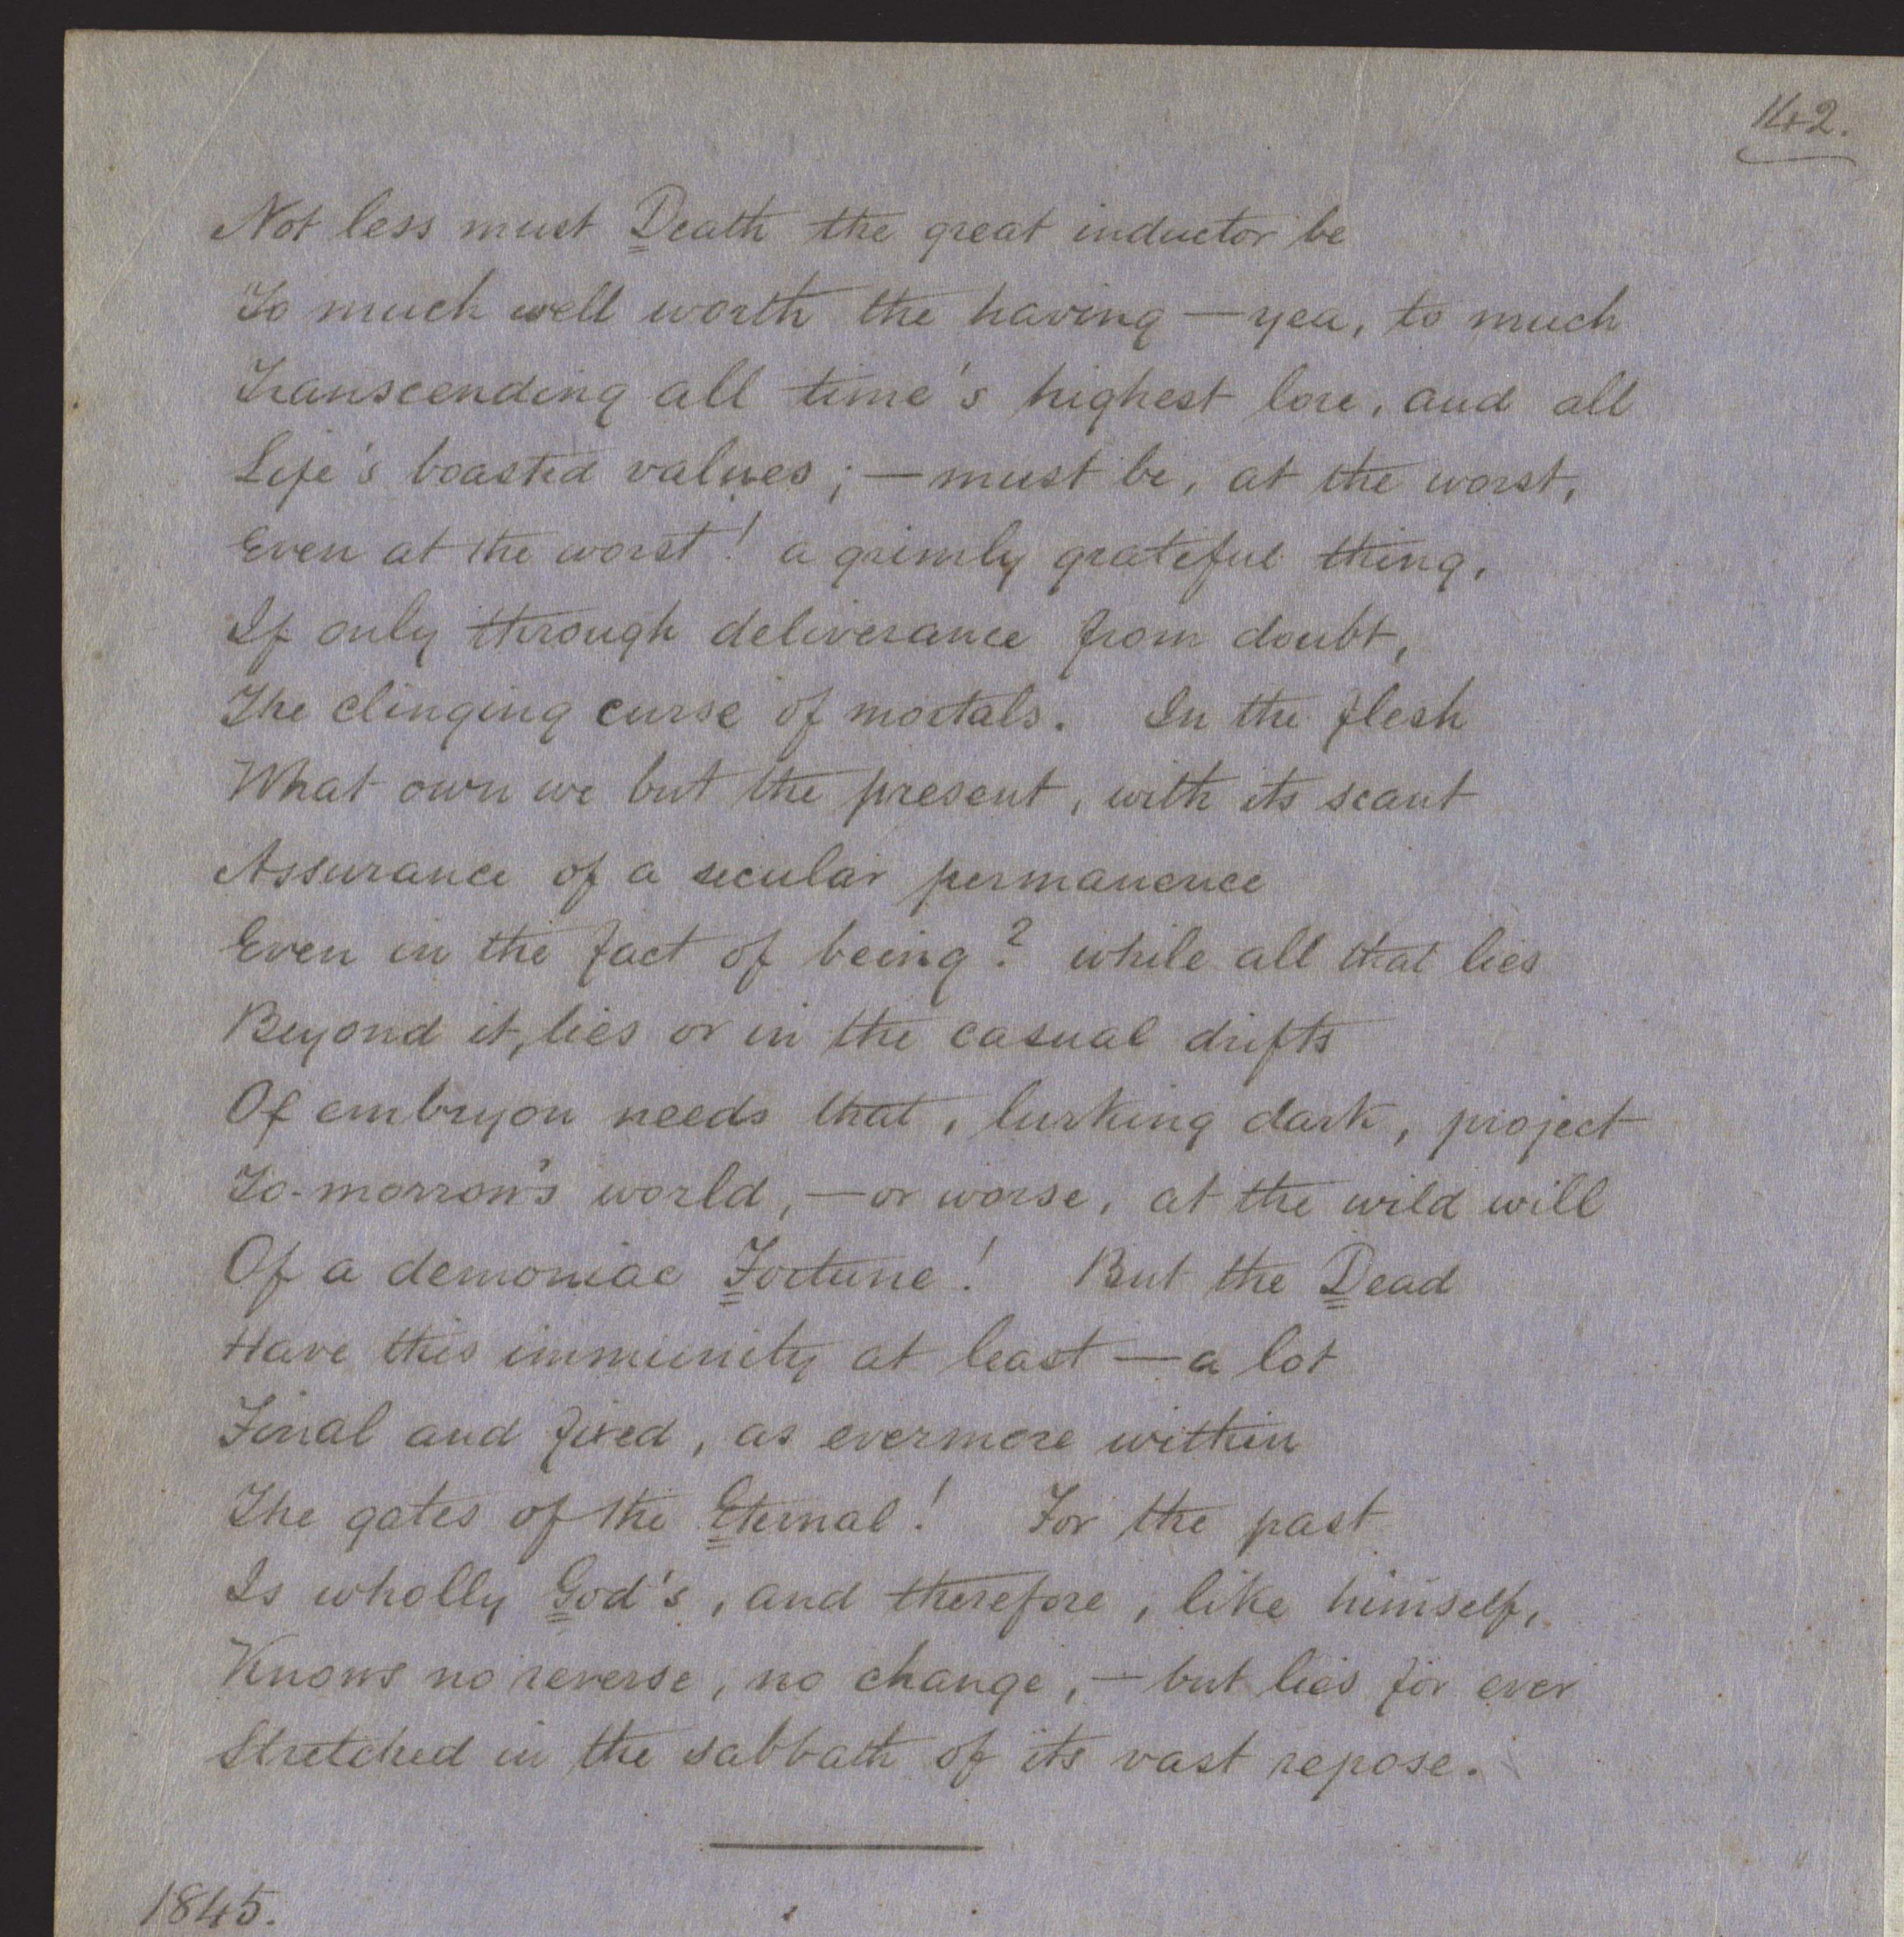 142.
Not less must Death the great inductor be
To much well worth the having — yea, to much
Transcending all time's highest lore, and all
Life's boasted values; — must be, at the worst,
Even at the worst! a grimly grateful thing,
If only through deliverance from doubt,
The clinging curse of mortals. In the flesh
What own we but the present, with its scant
Assurance of a secular permanence
Even in the fact of being? while all that lies
Beyond it, lies or in the casual drifts
Of embryon needs that, lurking dark, project
To-morrow's world, — or worse, at the wild will
Of a demoniac Fortune! But the Dead
Have this immunity at least — a lot
Final and fixed, as evermore within
The gates of the Eternal! For the past
Is wholly God's, and therefore, like himself,
Knows no reverse, no change, — but lies for ever
Stretched in the sabbath of its vast repose.
1845.